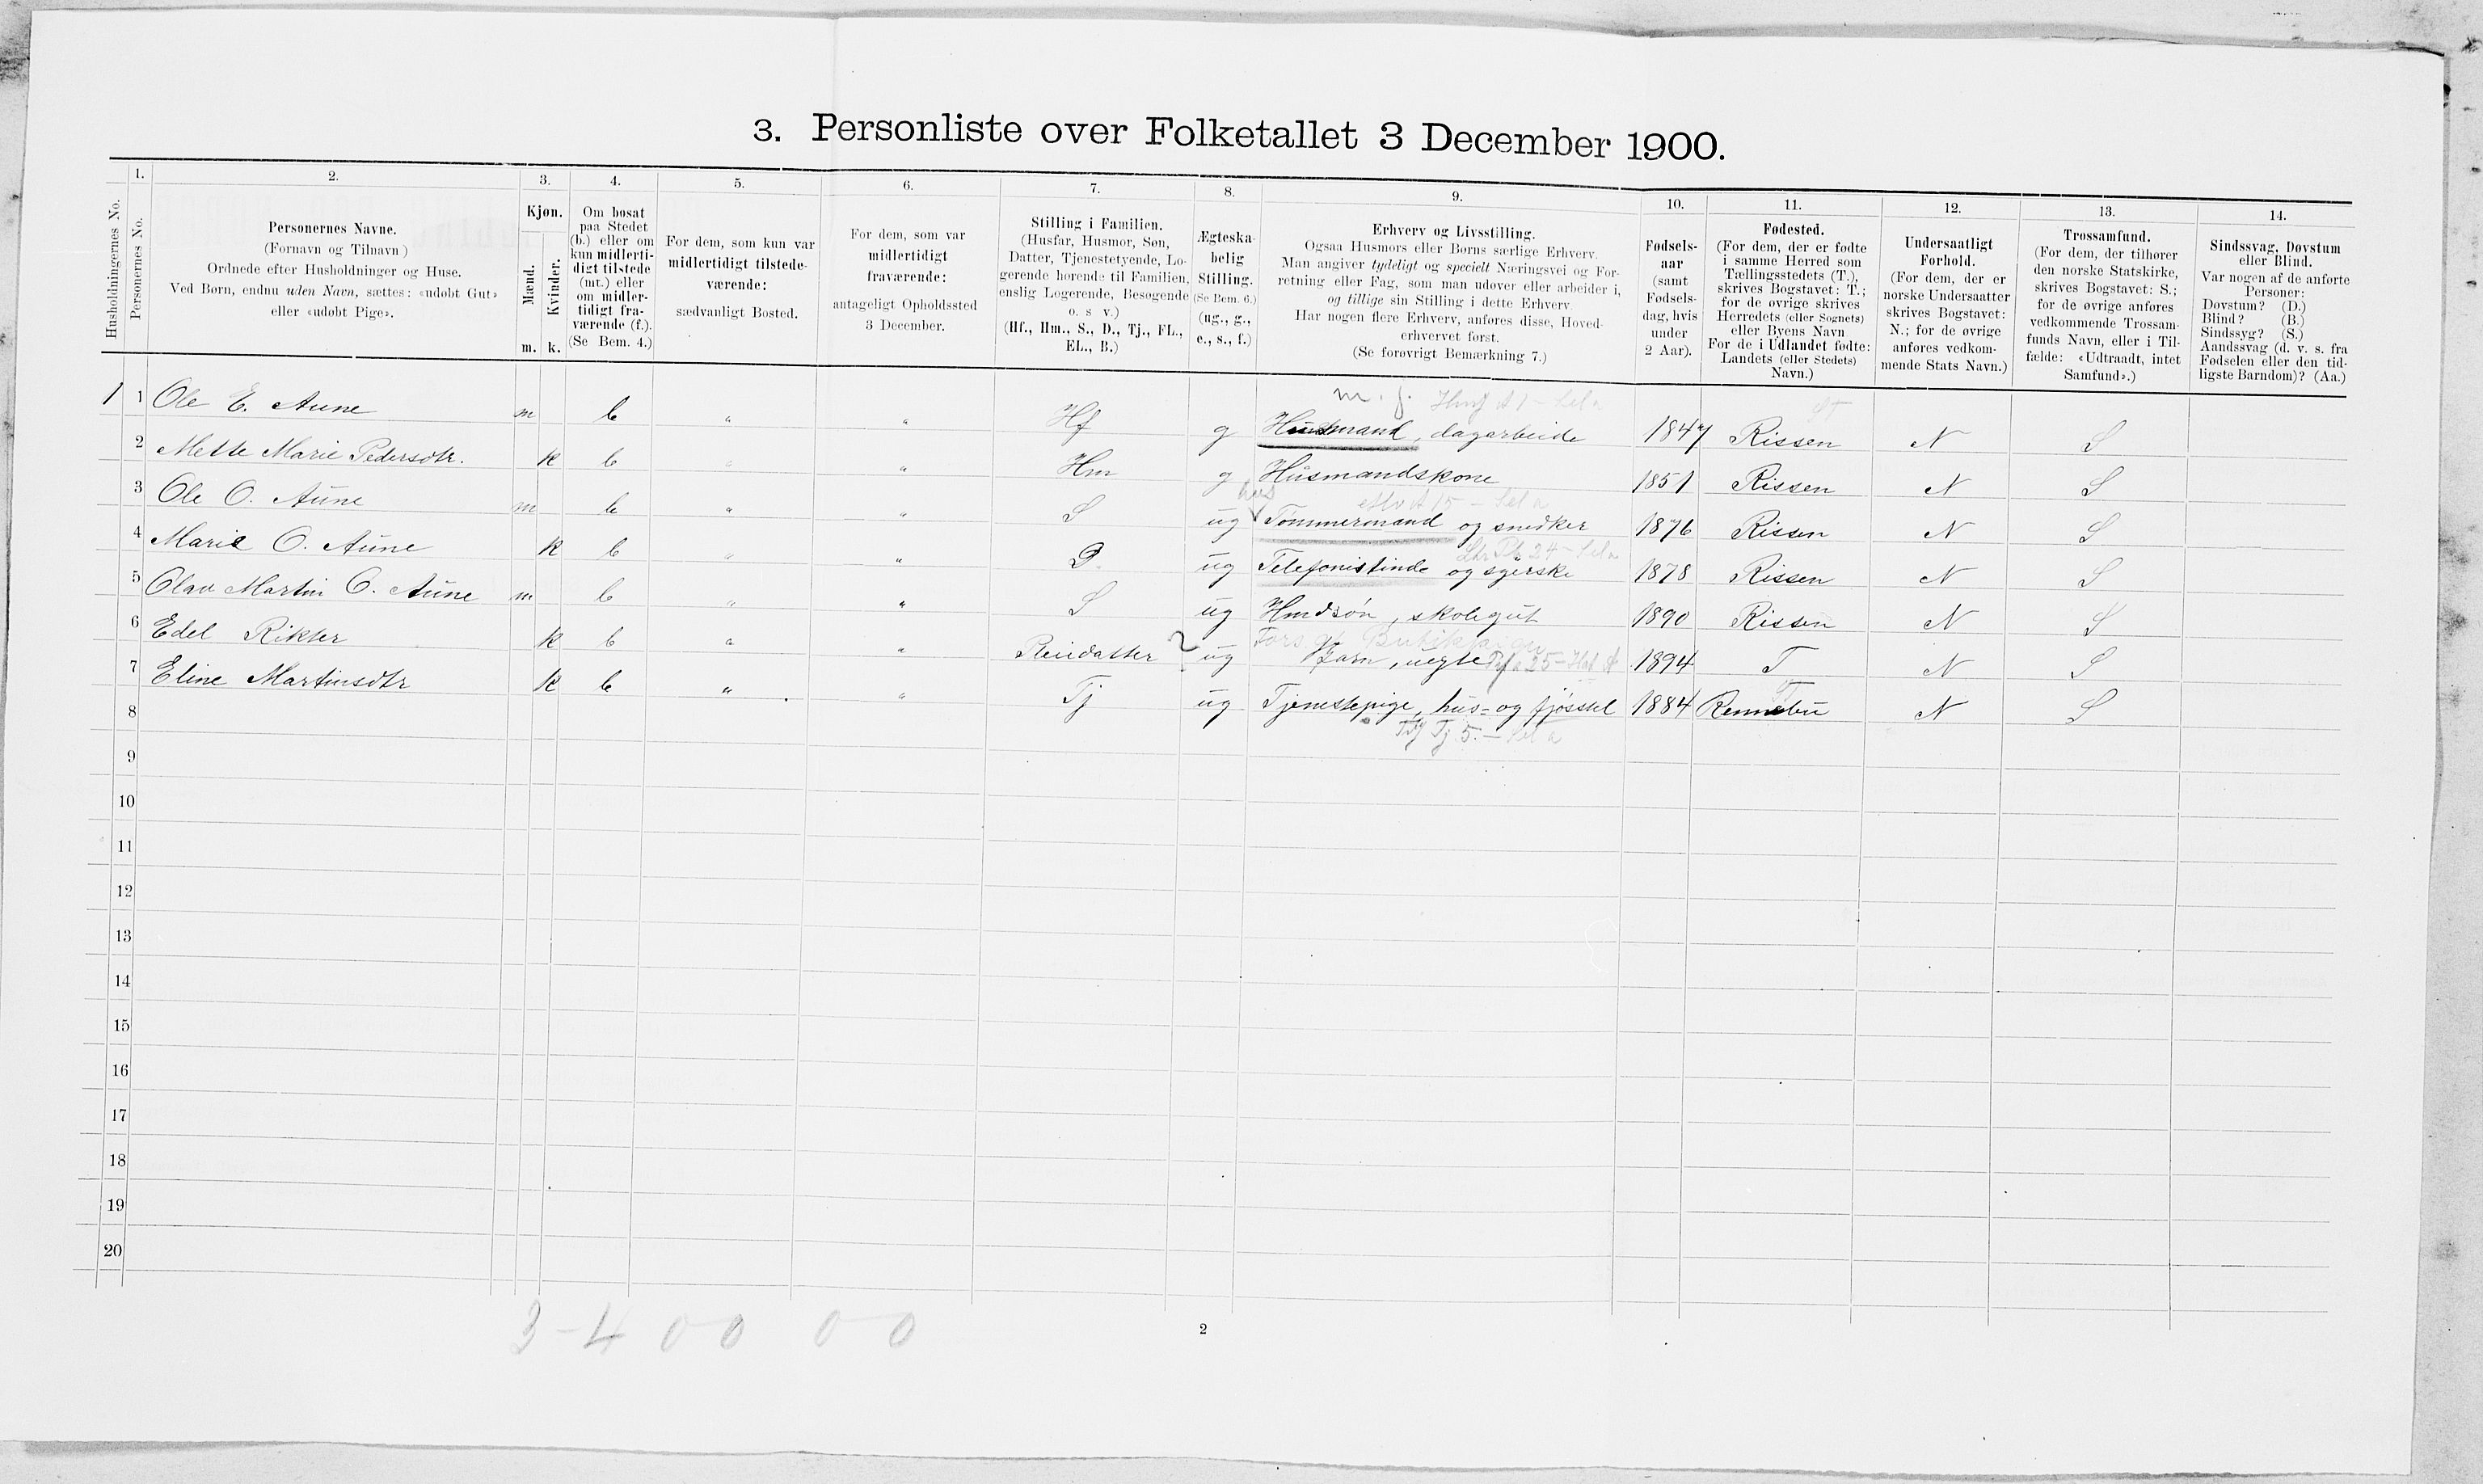 3. Personliste over Folketallet 3 December 1900.
1. 2. 3. 4. 5. 6. 7. 8. 9. 10. 11. 12. 13. 14.
Husholdningernes No.
Personernes No.
Personernes Navne.
(Fornavn og Tilnavn)
Ordnede efter Husholdninger og Huse.
Ved Børn, endnu uden Navn, sættes: «udøbt Gut»
eller «udøbt Pige».
Kjøn.
Mænd.
Kvinder.
m. k.
Om bosat
paa Stedet
(b.) eller om
kun midlerti-
digt tilstede
(mt.) eller
om midler-
tidigt fra-
værende (f.).
(Se Bem. 4.)
For dem, som kun var
midlertidigt tilstede-
værende:
sædvanligt Bosted.
For dem, som var
midlertidigt
fraværende:
antageligt Opholdssted
3 December.
Stilling i Familien.
(Husfar, Husmor, Søn,
Datter, Tjenestetyende, Lo-
gerende hørende til Familien,
enslig Logerende, Besøgende
o. s v.)
(Hf., Hm., S., D., Tj., FL.,
EL., B.)
Ægteska-
belig
Stilling.
(Se Bem. 6.)
(ug., g.,
e., s., f.)
Erhverv og Livsstilling.
Ogsaa Husmors eller Børns særlige Erhverv.
Man angiver tydeligt og specielt Næringsvei og For-
retning eller Fag, som man udøver eller arbeider i,
og tillige sin Stilling i dette Erhverv.
Har nogen flere Erhverv, anføres disse, Hoved-
erhvervet først.
(Se forøvrigt Bemærkning 7.)
Fødsels-
aar
(samt
Fødsels-
dag, hvis
under
2 Aar).
Fødested.
(For dem, der er fødte
i samme Herred som
Tællingsstedets (T.),
skrives Bogstavet: T.;
for de øvrige skrives
Herredets (eller Sognets)
eller Byens Navn
For de i Udlandet fødte:
Landets (eller Stedets)
Navn.)
Undersaatligt
Forhold.
(For dem, der er
norske Undersaatter
skrives Bogstavet:
N.; for de øvrige
anføres vedkom-
mende Stats Navn.)
Trossamfund.
(For dem, der tilhører
den norske Statskirke,
skrives Bogstavet: S.;
for de øvrige anføres
vedkommende Trossam-
funds Navn, eller i Til-
fælde: «Udtraadt, intet
Samfund».)
Sindssvag, Døvstum
eller Blind.
Var nogen af de anførte
Personer:
Døvstum? (D.)
Blind? (B.)
Sindssyg? (S.)
Aandssvag (d. v. s. fra
Fødselen eller den tid-
ligste Barndom)? (Aa.)
m. f.
1 1 Ole E. Aune m b " " Hf g Husmand, dagarbeide 1847 Rissen N S
2 Mette Marie Pedersdtr. k b " " Hm g Husmandskone 1851 Rissen N S
hus
3 Ole O. Aune m b " " S ug Tømmermand og snedker 1876 Rissen N S
4 Marie O. Aune k b " " D. ug Telefonistinde og syerske 1878 Rissen N S
5 Olav Martin O. Aune m b " " S ug Hmdsøn, skolegut 1890 Rissen N S
6 Edel Rikter k b " " Pleiedatter ? ug Barn, uegte 1894 T N S
7 Eline Martinsdtr k b " " Tj ug Tjenestepige, hus- og fjøsstel 1884 Rennebu N S
8
9
10
11
12
13
14
15
16
17
18
19
20
3 - 4 0 - 0 0 - 0
2